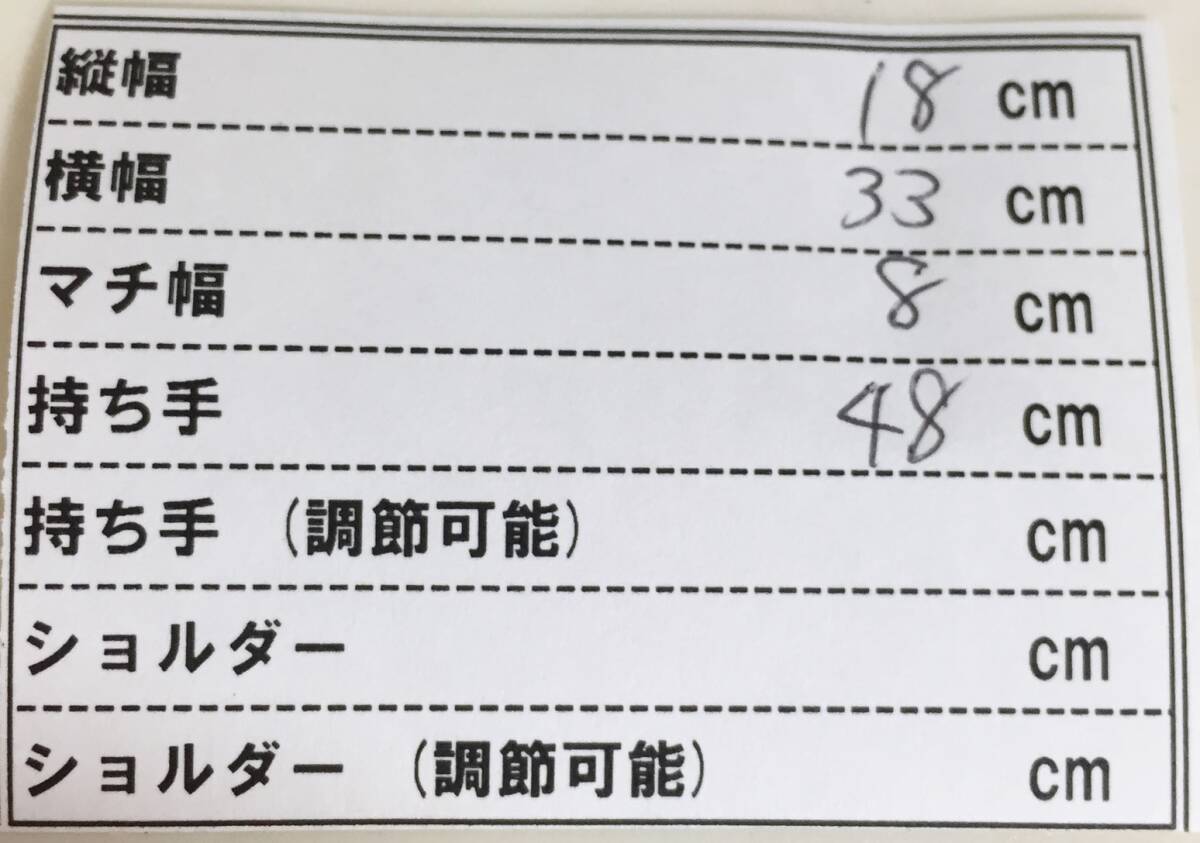 縦幅 18 cm
横幅 33 cm
マチ幅 8 cm
持ち手 48 cm
持ち手 (調節可能) cm
ショルダー cm
ショルダー (調節可能) cm